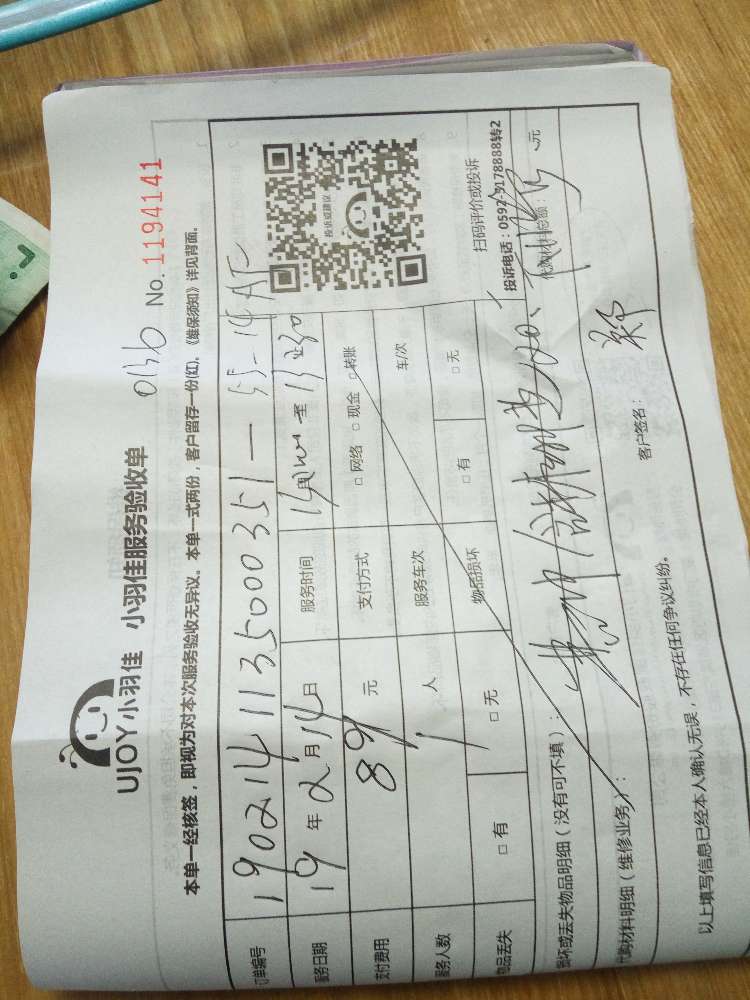 UJOY小羽佳 小羽佳服务验收单
0136 No.1194141
本单一经核签，即视为对本次服务验收无异议。本单一式两份，客户留存一份(红)，《维保须知》详见背面。
订单编号 1902141135000351—55-14AF
服务日期 19年2月14日 服务时间 至
支付费用 89元 支付方式 □网络 □现金 □转账
服务人数 1人 服务车次 车/次
物品丢失 □有 □无 物品损坏 □有 □无
投诉或建议
扫码评价或投诉
投诉电话：0592-5178888转2
损坏或丢失物品明细（没有可不填）：
代购材料明细（维修业务）： 代购材料总额： 元
客户签名：
以上填写信息已经本人确认无误，不存在任何争议纠纷。